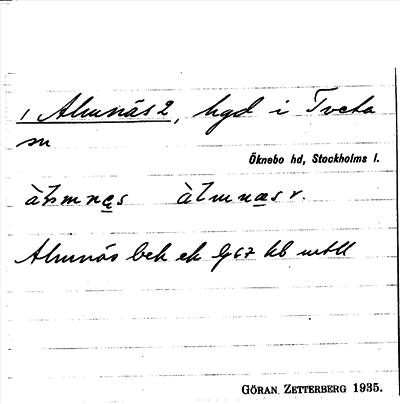 1 Almnäs 2, hgd i Tveta
sn
Öknebo hd, Stockholms l.
àlmnas àlmnas v.
Almnäs bek ek Gg 67 hb
GÖRAN ZETTERBERG 1935.